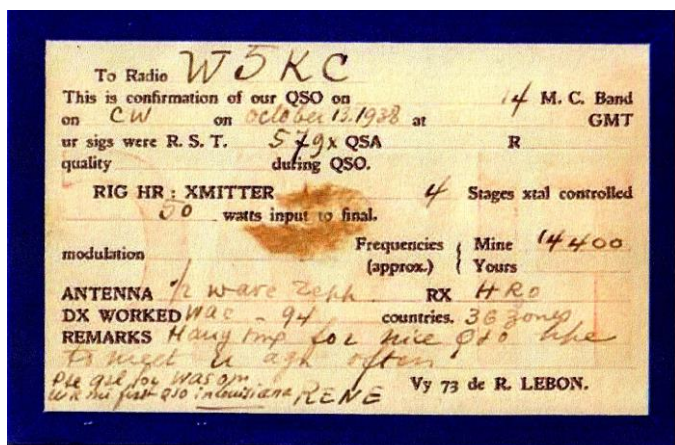 To Radio W5KC
This is confirmation of our QSO on 14 M. C. Band
on CW on october 13.1938 at GMT
ur sigs were R. S. T. 579x QSA R
quality during QSO.
RIG HR : XMITTER 4 Stages xtal controlled
50 watts input to final.
modulation Frequencies (approx.) { Mine 14400
Yours
ANTENNA 1/2 wave Zepp. RX HRO
DX WORKED WAC - 94 countries. 36 Zones
REMARKS Many tnx for nice QSO hpe
to meet u agn often
Pse qsl for was om
ur mi first qso in Louisiana RENE
Vy 73 de R. LEBON.